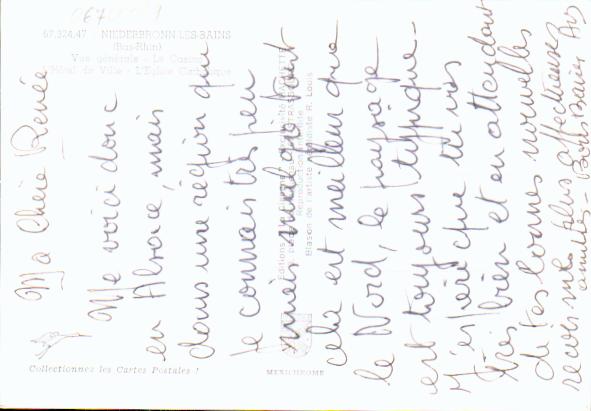 67.324.47 - NIEDERBRONN-LES-BAINS
(Bas-Rhin)
Vue générale - Le Casino
L'Hôtel de Ville - L'Eglise Catholique
Ma Chère Renée
Me voici donc
en Alsace, mais
dans une région que
je connais très peu
mais
cela est meilleur que
le Nord, le paysage
est toujours typique.
J'espère que tu vas
très bien et en attendant
de tes bonnes nouvelles
reçois mes plus affectueuses
amitiés - Bons Baisers
Collectionnez les Cartes Postales !
MEXICHROME
Reproduction interdite
Blason de l'artiste R. Louis